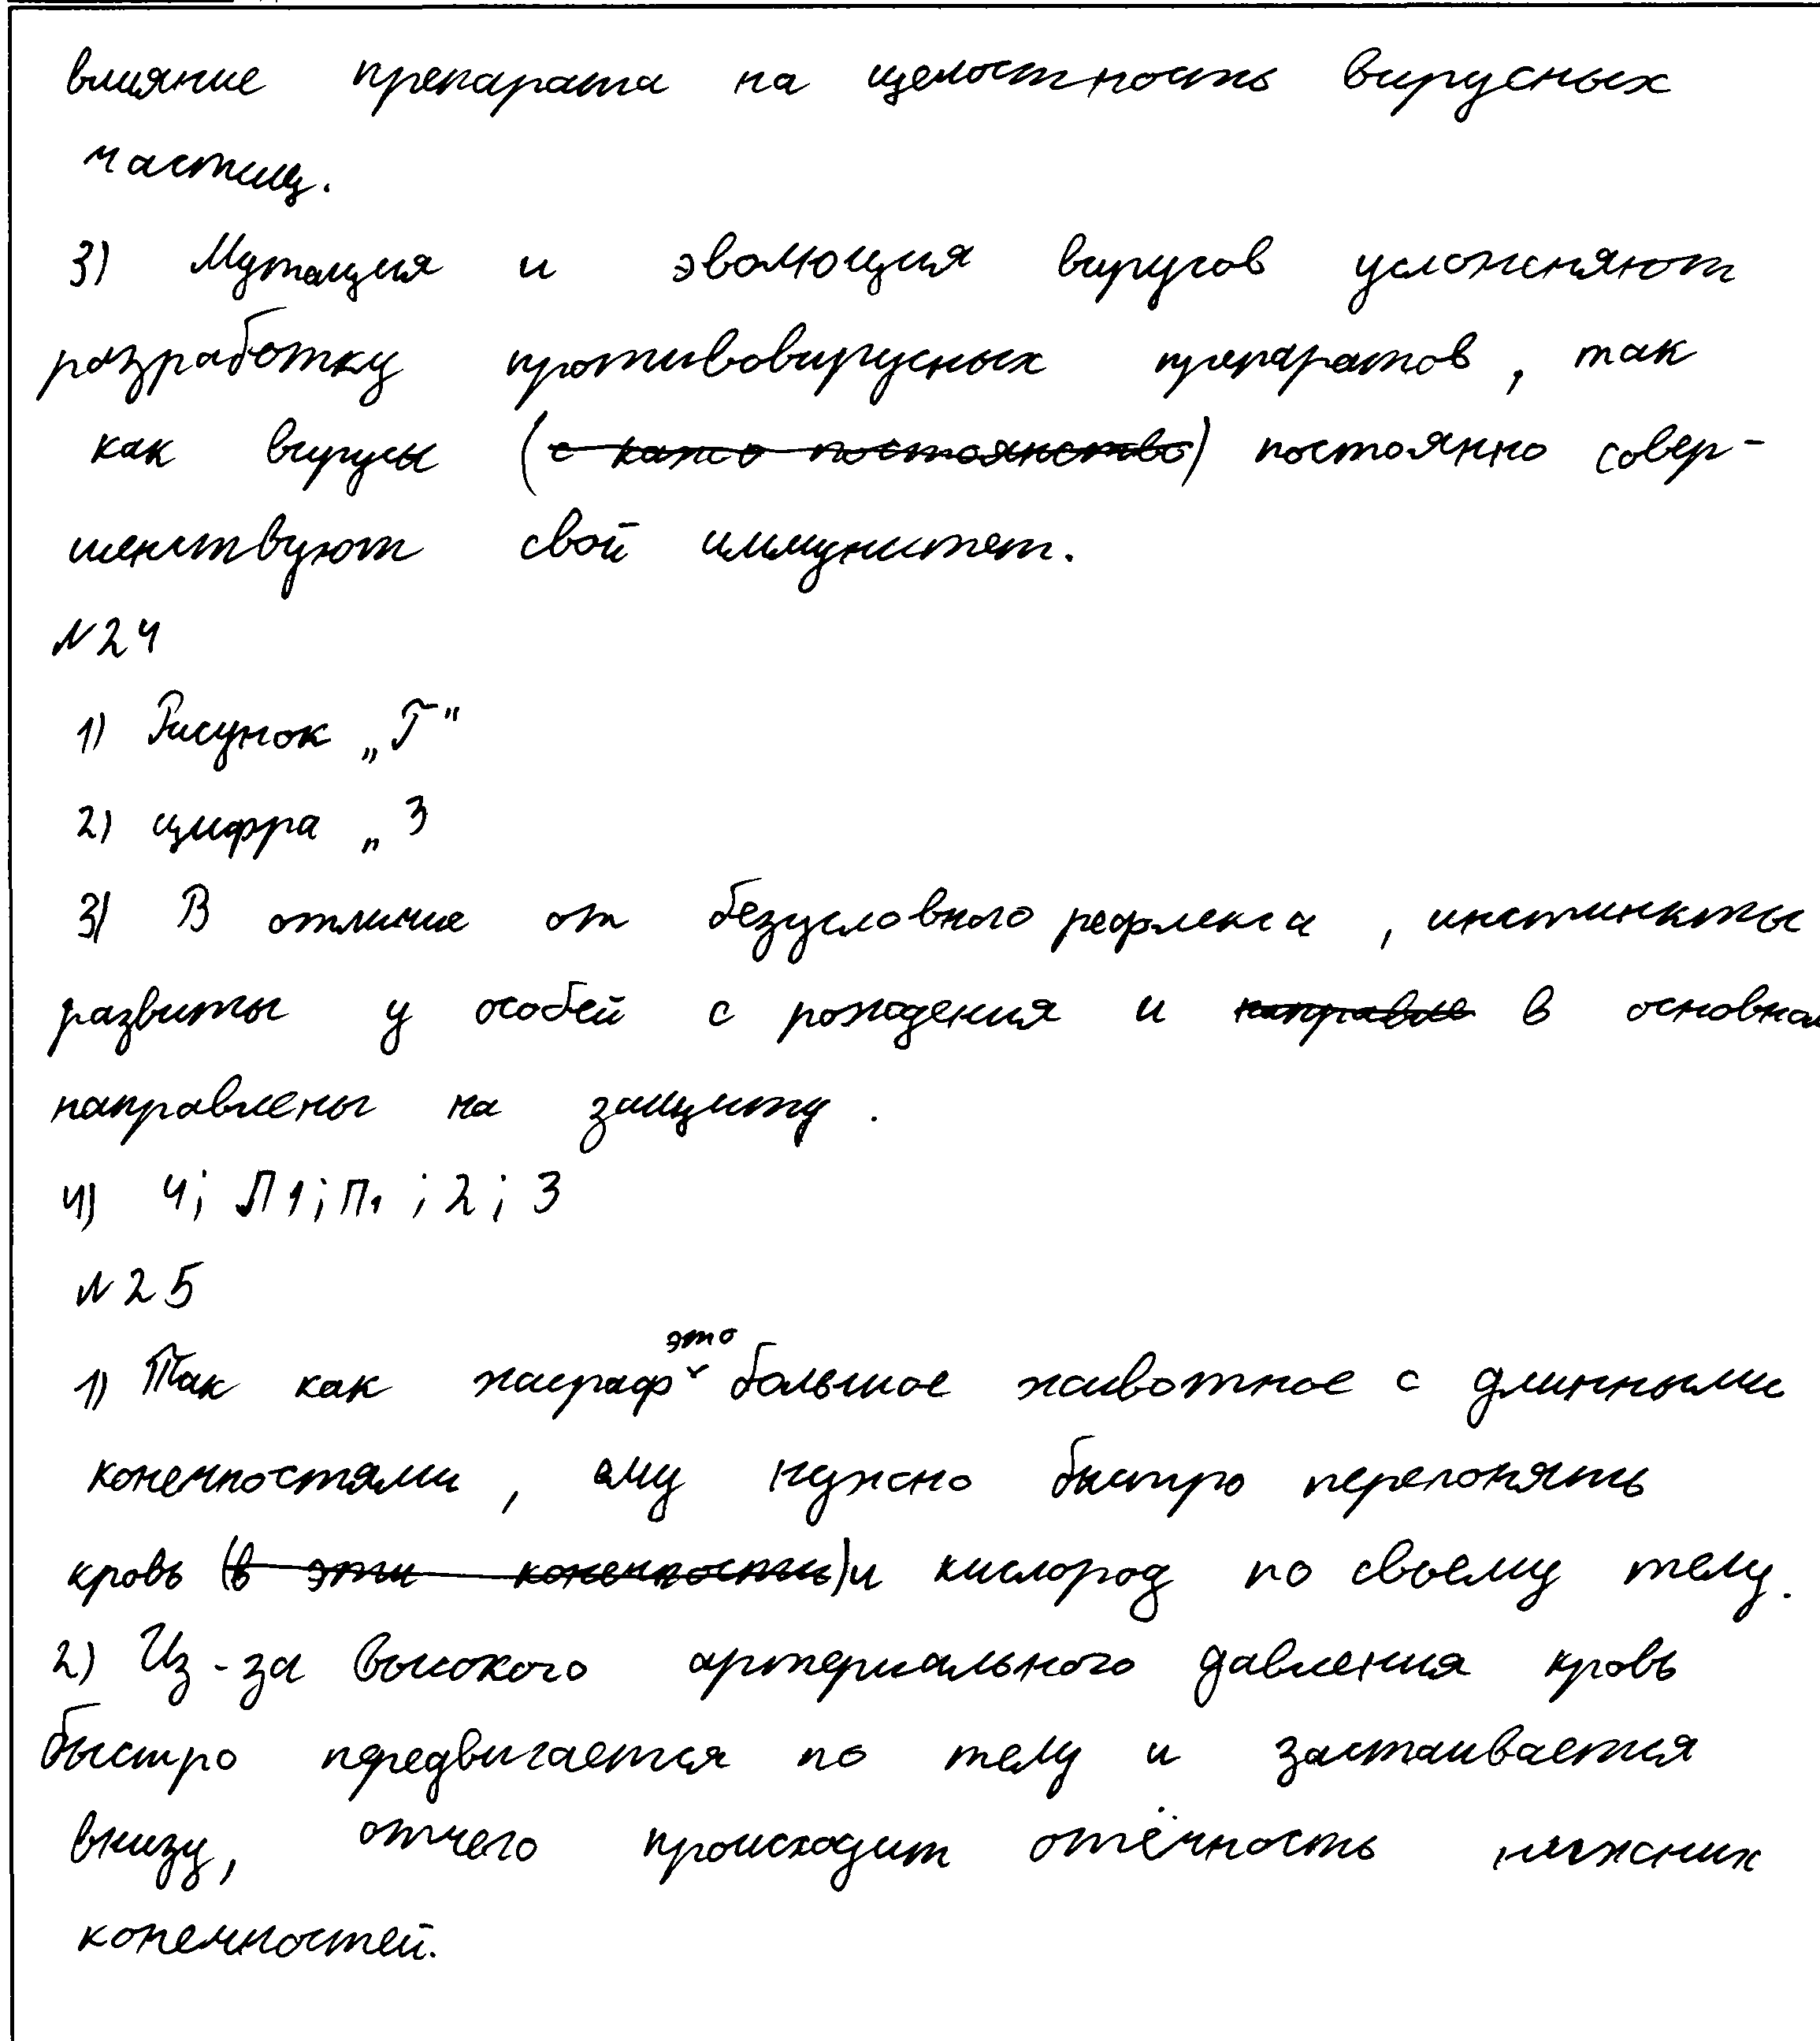 влияние препарата на целостность вирусных
частиц.
3) Мутация и эволюция вирусов усложняют
разработку противовирусных препаратов, так
как вирусы (с каждо постоянство) постоянно совер-
шенствуют свой иммунитет.
№24
1) Рисунок „Г"
2) цифра „3
3) В отличие от безусловного рефлекса, инстинкты
развиты у особей с рождения и направле в основном
направлены на защиту.
4) 4; Л1; П1; 2; 3
№25
1) Так как жираф это большое животное с длинными
конечностями, ему нужно быстро перегонять
кровь (в эти конечности) и кислород по своему телу.
2) Из-за высокого артериального давления кровь
быстро передвигается по телу и застаивается
внизу, отчего происходит отёчность нижних
конечностей.